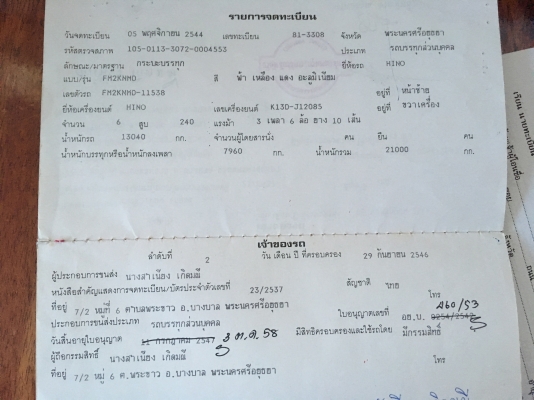 รายการจดทะเบียน
วันจดทะเบียน 05 พฤศจิกายน 2544 เลขทะเบียน 81-3308 จังหวัด พระนครศรีอยุธยา
รหัสตรวจสภาพ 105-0113-3072-0004553 ประเภท รถบรรทุกส่วนบุคคล
ลักษณะ/มาตรฐาน กระบะบรรทุก ยี่ห้อรถ HINO
แบบ/รุ่น FM2KNMD สี ฟ้า เหลือง แดง อะลูมิเนียม
เลขตัวรถ FM2KNMD-11538 อยู่ที่ หน้าซ้าย
ยี่ห้อเครื่องยนต์ HINO เลขเครื่องยนต์ K13D-J12085 อยู่ที่ ขวาเครื่อง
จำนวน 6 สูบ 240 แรงม้า 3 เพลา 6 ล้อ ยาง 10 เส้น
น้ำหนักรถ 13040 กก. จำนวนผู้โดยสารนั่ง คน ยืน คน
น้ำหนักบรรทุกหรือน้ำหนักลงเพลา 7960 กก. น้ำหนักรวม 21000 กก.
เจ้าของรถ
ลำดับที่ 2 วัน เดือน ปี ที่ครอบครอง 29 กันยายน 2546
ผู้ประกอบการขนส่ง นางสำเนียง เกิดมณี
หนังสือสำคัญแสดงการจดทะเบียน/บัตรประจำตัวเลขที่ 23/2537 สัญชาติ ไทย
ที่อยู่ 7/2 หมู่ที่ 6 ตำบลพระขาว อ.บางบาล พระนครศรีอยุธยา โทร
460/53
ประกอบการขนส่งประเภท รถบรรทุกส่วนบุคคล ใบอนุญาตเลขที่ อย.บ. 0254/2542
วันสิ้นอายุใบอนุญาต กรกฎาคม 2547 3 ต.ค. 58 มีสิทธิครอบครองและใช้รถโดย มีกรรมสิทธิ์
ผู้ถือกรรมสิทธิ์ นางสำเนียง เกิดมณี โทร
ที่อยู่ 7/2 หมู่ 6 ต.พระขาว อ.บางบาล พระนครศรีอยุธยา